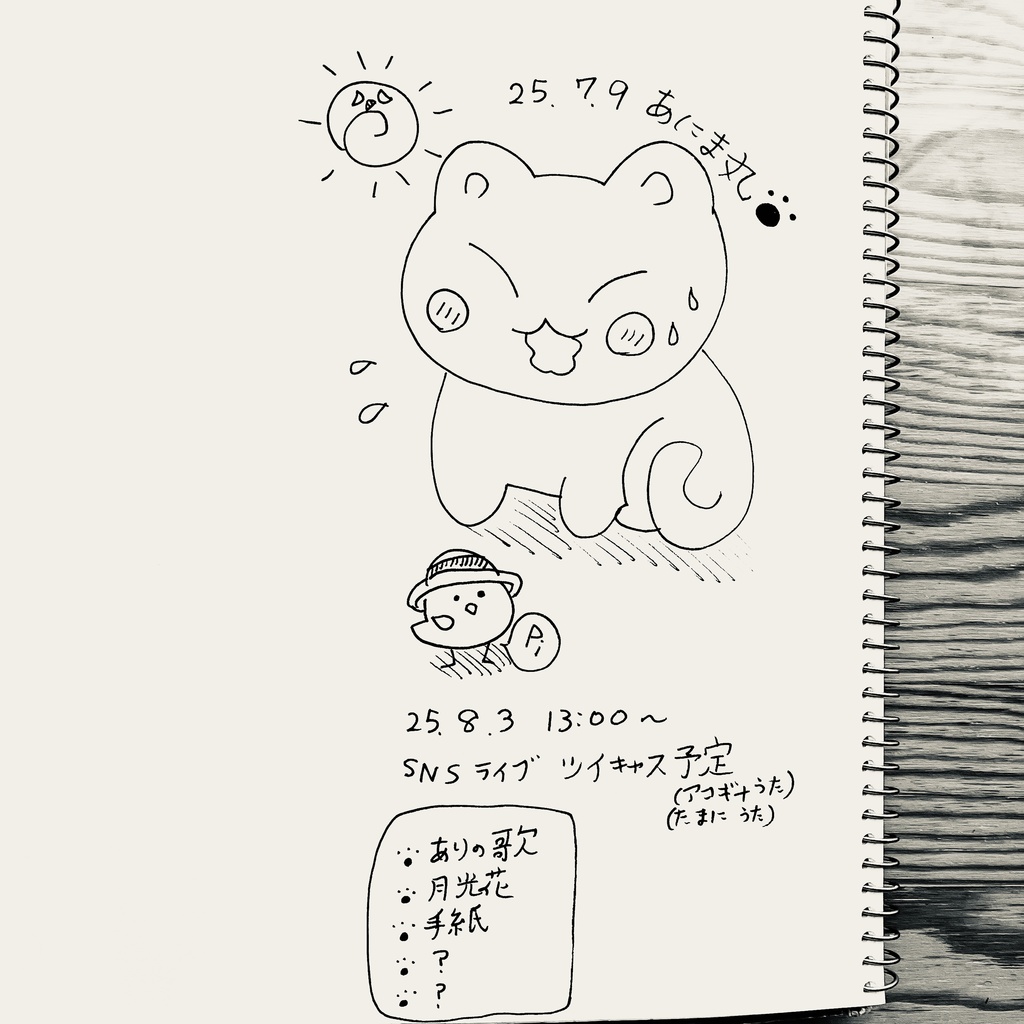 25.7.9 あにま丸
Pi
25.8.3 13:00～
SNSライブ ツイキャス予定
(アコギナうた)
(たまに うた)
ありの歌
月光花
手紙
?
?